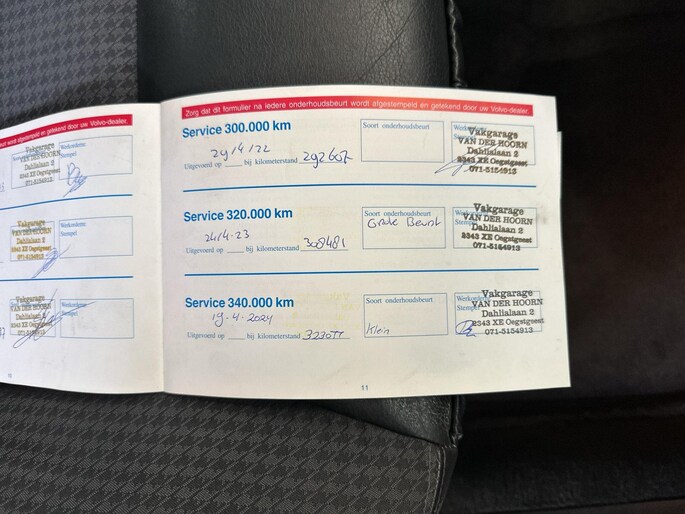 wordt afgestempeld en getekend door uw Volvo-dealer.
Werkordernr.
Stempel
Vakgarage
VAN DER HOORN
Dahlialaan 2
2343 XE Oegstgeest
071-5154913
Werkordernr.
Stempel
Vakgarage
VAN DER HOORN
Dahlialaan 2
2343 XE Oegstgeest
071-5154913
Werkordernr.
Stempel
Vakgarage
VAN DER HOORN
Dahlialaan 2
2343 XE Oegstgeest
071-5154913
10
Zorg dat dit formulier na iedere onderhoudsbeurt wordt afgestempeld en getekend door uw Volvo-dealer.
Service 300.000 km
29/4/22
Uitgevoerd op bij kilometerstand 292607
Soort onderhoudsbeurt
Vakgarage
VAN DER HOORN
Dahlialaan 2
2343 XE Oegstgeest
071-5154913
Service 320.000 km
24/4-23
Uitgevoerd op bij kilometerstand 308481
Soort onderhoudsbeurt
Grote Beurt
Vakgarage
VAN DER HOORN
Dahlialaan 2
2343 XE Oegstgeest
071-5154913
Service 340.000 km
19-4-2024
Uitgevoerd op bij kilometerstand 323077
Soort onderhoudsbeurt
Klein
Vakgarage
VAN DER HOORN
Dahlialaan 2
2343 XE Oegstgeest
071-5154913
11